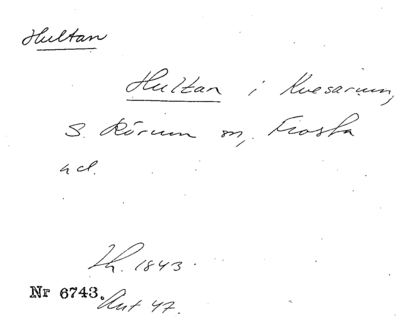 Hultan
Hultan i Kvesarum,
S. Rörum sn, Frosta
hd.
Lh. 1843.
Nr 6743. Aut 47.